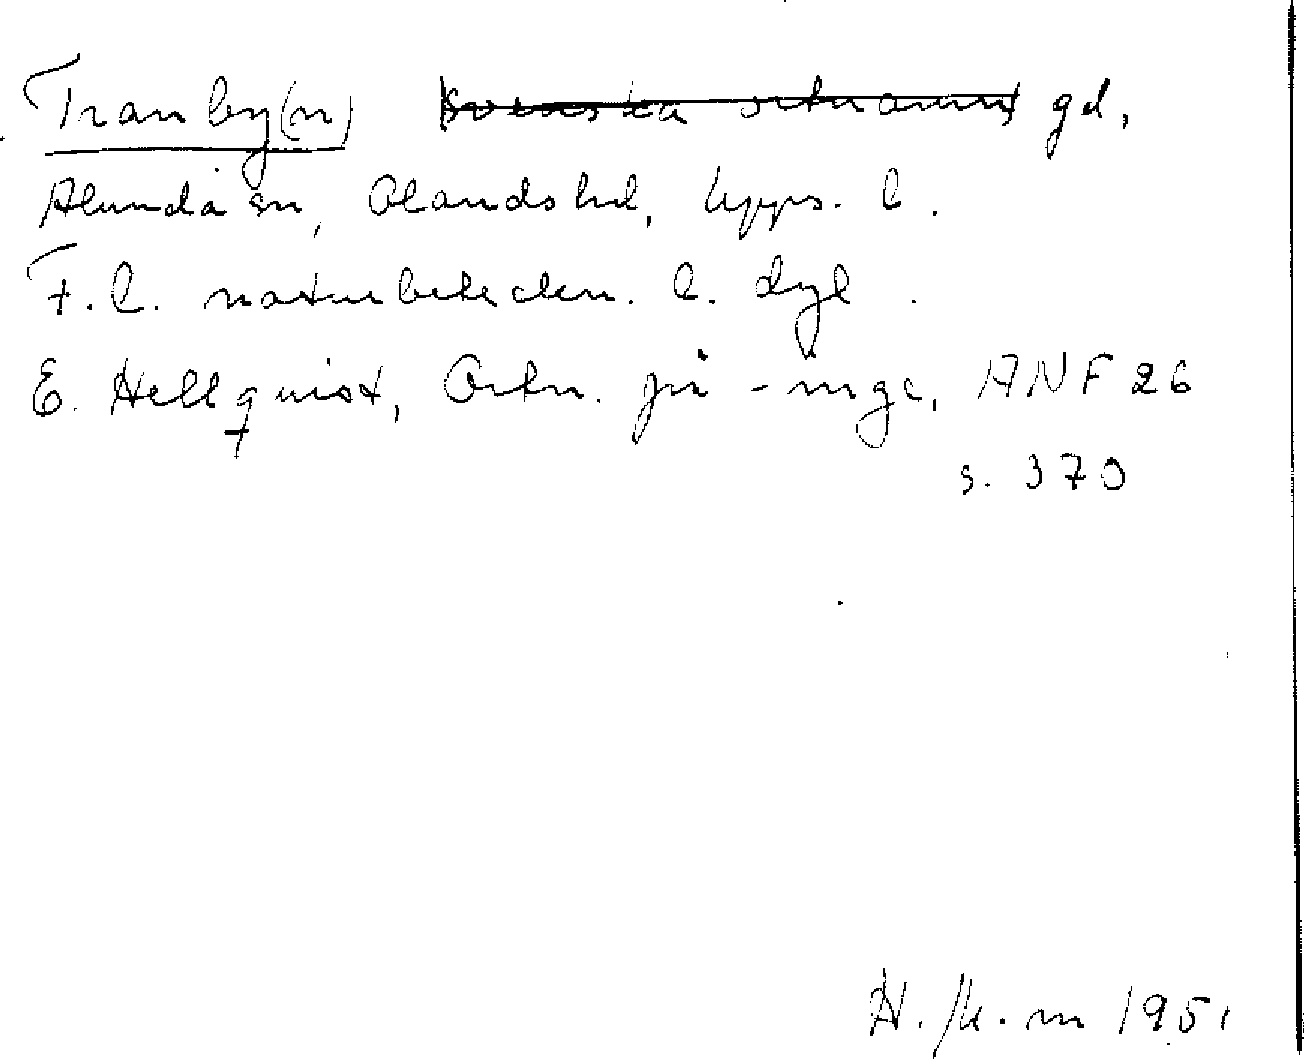 Tranby(n) svenska ortnamn gd,
Alunda sn, Olands hd, Upps. l.
F. l. naturbetecken. l. dyl.
E. Hellquist, Ortn. på -inge, ANF 26
s. 370
1951